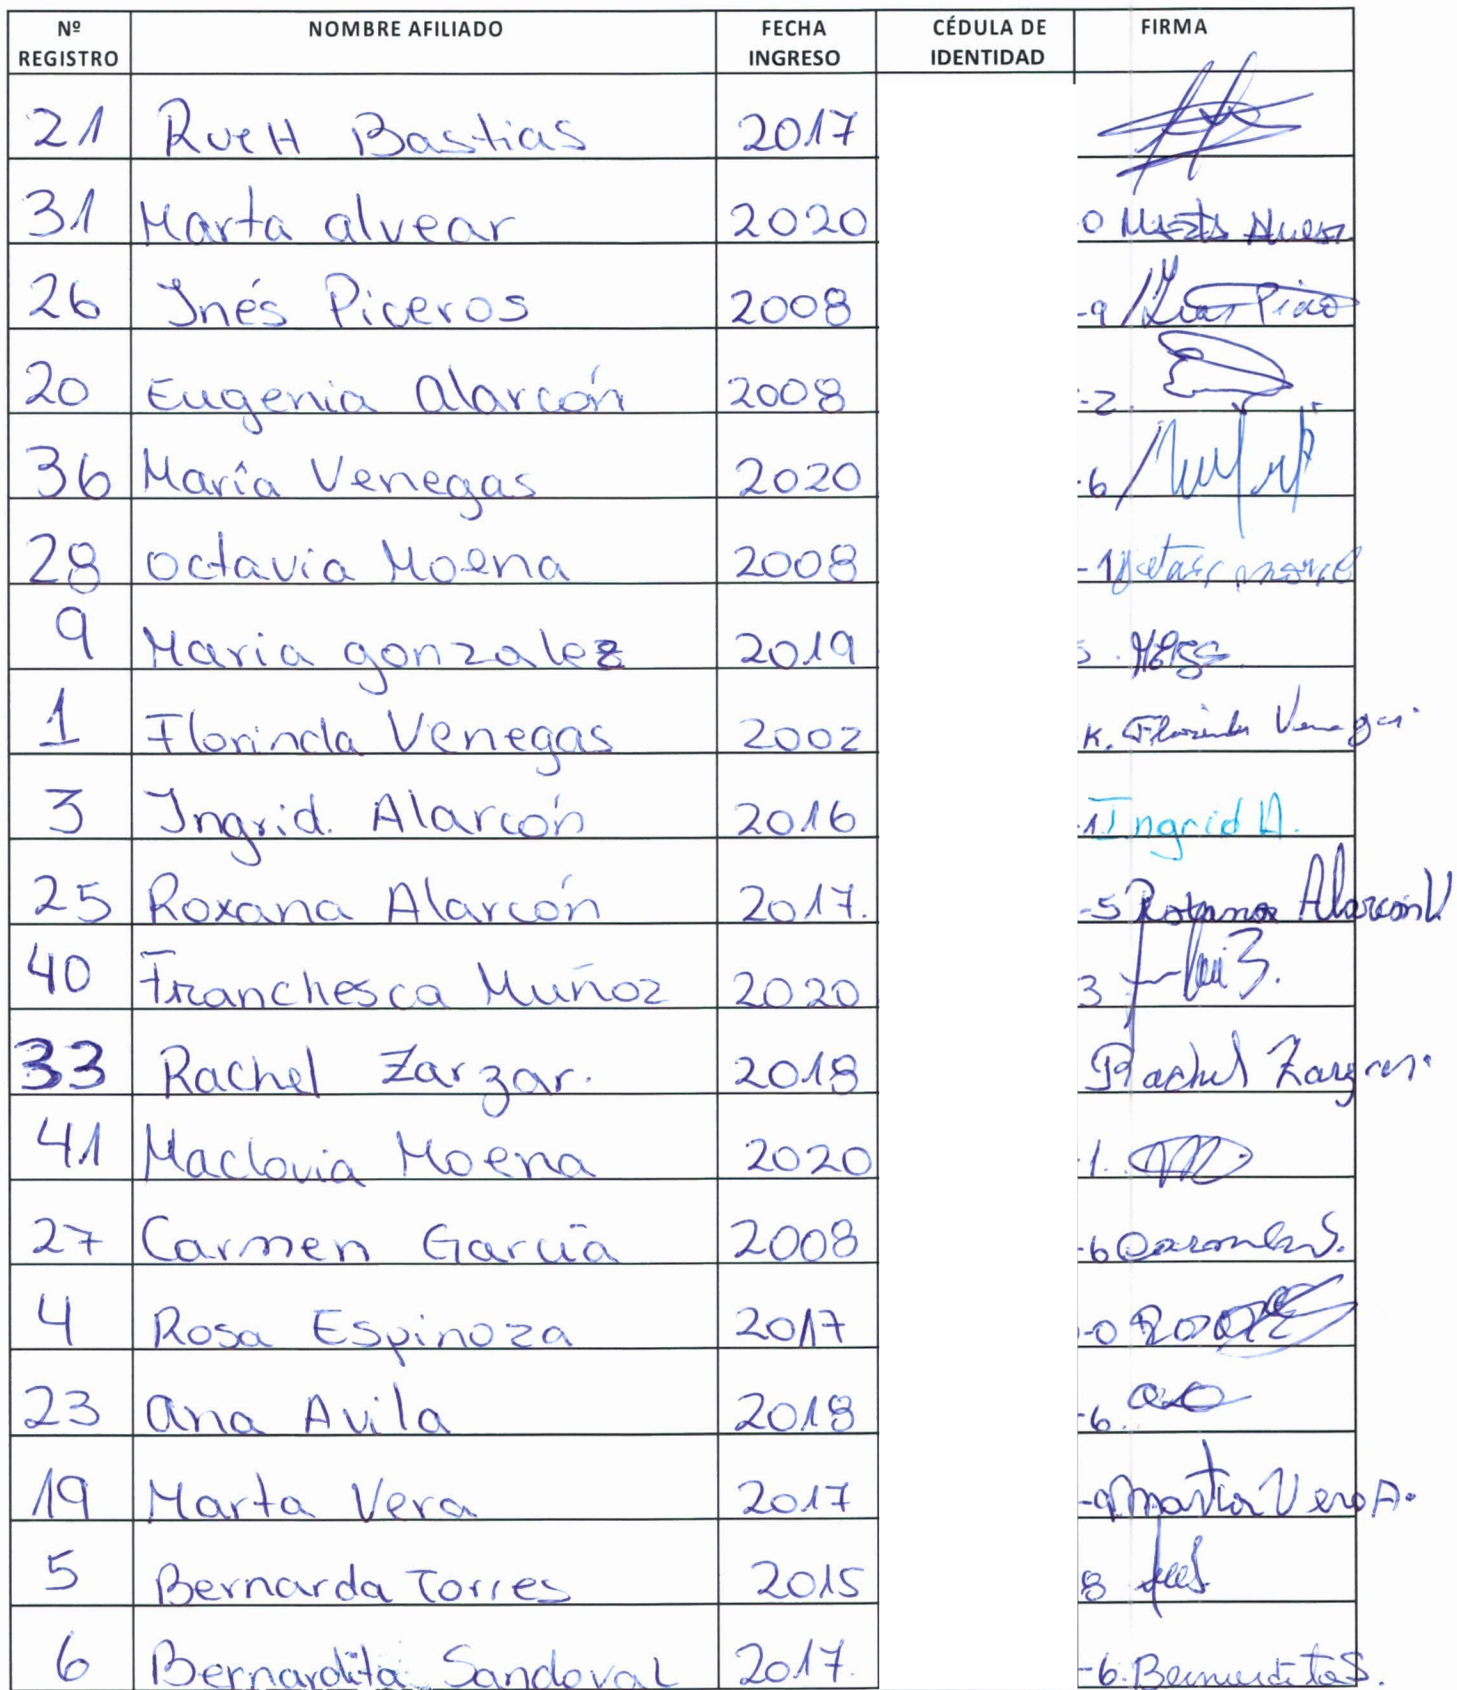 Nº REGISTRO NOMBRE AFILIADO FECHA INGRESO CÉDULA DE IDENTIDAD FIRMA
21 Rueth Bastias 2017
31 Marta alvear 2020 0
26 Inés Piceros 2008 -9
20 Eugenia Alarcón 2008 -2.
36 María Venegas 2020 -6
28 octavia Moena 2008 -1
9 Maria gonzalez 2019
1 Florinda Venegas 2002 K. Florinda Venegas
3 Ingrid. Alarcón 2016 -1 Ingrid A.
25 Roxana Alarcón 2017. -5 Roxana Alarcon V.
40 Franchesca Muñoz 2020 3
33 Rachel Zarzar. 2018 Rachel Zarzar.
41 Maclovia Moena 2020 -1.
27 Carmen García 2008 -6
4 Rosa Espinoza 2017 -0
23 Ana Avila 2018 -6.
19 Marta Vera 2017 -9 Marta Vera A.
5 Bernarda Torres 2015 8
6 Bernardita Sandoval 2017. -6. Bernardita S.